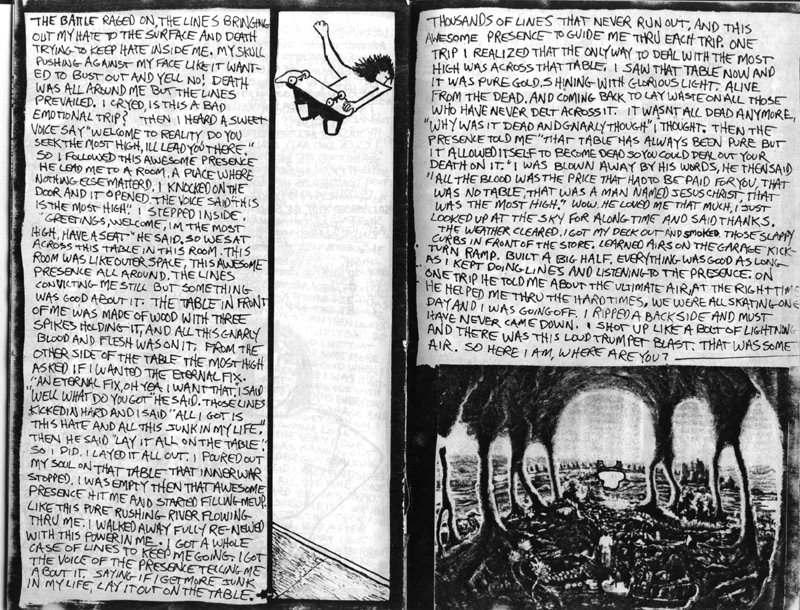 THE BATTLE RAGED ON, THE LINES BRINGING
OUT MY HATE TO THE SURFACE AND DEATH
TRYING TO KEEP HATE INSIDE ME. MY SKULL
PUSHING AGAINST MY FACE LIKE IT WANT-
ED TO BUST OUT AND YELL NO! DEATH
WAS ALL AROUND ME BUT THE LINES
PREVAILED. I CRYED, IS THIS A BAD
EMOTIONAL TRIP? THEN I HEARD A SWEET
VOICE SAY "WELCOME TO REALITY, DO YOU
SEEK THE MOST HIGH, ILL LEAD YOU THERE."
SO I FOLLOWED THIS AWESOME PRESENCE
HE LEAD ME TO A ROOM. A PLACE WHERE
NOTHING ELSE MATTERD. I KNOCKED ON THE
DOOR AND IT OPENED. THE VOICE SAID "THIS
IS THE MOST HIGH." I STEPPED INSIDE.
"GREETINGS, WELCOME, I'M THE MOST
HIGH, HAVE A SEAT" HE SAID. SO WE SAT
ACROSS THIS TABLE IN THIS ROOM. THIS
ROOM WAS LIKE OUTER SPACE, THIS AWESOME
PRESENCE ALL AROUND. THE LINES
CONVICTING ME STILL BUT SOMETHING
WAS GOOD ABOUT IT. THE TABLE IN FRONT
OF ME WAS MADE OF WOOD WITH THREE
SPIKES HOLDING IT, AND ALL THIS GNARLY
BLOOD AND FLESH WAS ON IT. FROM THE
OTHER SIDE OF THE TABLE THE MOST HIGH
ASKED IF I WANTED THE ETERNAL FIX.
"AN ETERNAL FIX, OH YEA I WANT THAT, I SAID
"WELL WHAT DO YOU GOT" HE SAID. THOSE LINES
KICKED IN HARD AND I SAID "ALL I GOT IS
THIS HATE AND ALL THIS JUNK IN MY LIFE."
THEN HE SAID "LAY IT ALL ON THE TABLE".
SO I DID. I LAYED IT ALL OUT. I POURED OUT
MY SOUL ON THAT TABLE THAT INNER WAR
STOPPED. I WAS EMPTY THEN THAT AWESOME
PRESENCE HIT ME AND STARTED FILLING ME UP.
LIKE THIS PURE RUSHING RIVER FLOWING
THRU ME. I WALKED AWAY FULLY RE-NEWED
WITH THIS POWER IN ME. I GOT A WHOLE
CASE OF LINES TO KEEP ME GOING. I GOT
THE VOICE OF THE PRESENCE TELLING ME
ABOUT IT, SAYING IF I GET MORE JUNK
IN MY LIFE, LAY IT OUT ON THE TABLE.
THOUSANDS OF LINES THAT NEVER RUN OUT, AND THIS
AWESOME PRESENCE TO GUIDE ME THRU EACH TRIP. ONE
TRIP I REALIZED THAT THE ONLY WAY TO DEAL WITH THE MOST
HIGH WAS ACROSS THAT TABLE. I SAW THAT TABLE NOW AND
IT WAS PURE GOLD. SHINING WITH GLORIOUS LIGHT. ALIVE
FROM THE DEAD. AND COMING BACK TO LAY WASTE ON ALL THOSE
WHO HAVE NEVER DELT ACROSS IT. IT WASNT ALL DEAD ANYMORE,
"WHY WAS IT DEAD AND GNARLY THOUGH" I THOUGHT. THEN THE
PRESENCE TOLD ME "THAT TABLE HAS ALWAYS BEEN PURE BUT
IT ALLOWED ITSELF TO BECOME DEAD SO YOU COULD DEAL OUT YOUR
DEATH ON IT." I WAS BLOWN AWAY BY HIS WORDS, HE THEN SAID
"ALL THE BLOOD WAS THE PRICE THAT HAD TO BE PAID FOR YOU, THAT
WAS NO TABLE, THAT WAS A MAN NAMED JESUS CHRIST, THAT
WAS THE MOST HIGH." WOW. HE LOVED ME THAT MUCH, I JUST
LOOKED UP AT THE SKY FOR A LONG TIME AND SAID THANKS.
THE WEATHER CLEARED. I GOT MY DECK OUT AND SMOKED THOSE SLAPPY
CURBS IN FRONT OF THE STORE. LEARNED AIRS ON THE GARAGE KICK-
TURN RAMP. BUILT A BIG HALF. EVERYTHING WAS GOOD AS LONG
AS I KEPT DOING LINES AND LISTENING TO THE PRESENCE. ON
ONE TRIP HE TOLD ME ABOUT THE ULTIMATE AIR, AT THE RIGHT TIME
HE HELPED ME THRU THE HARD TIMES. WE WERE ALL SKATING ONE
DAY AND I WAS GOING OFF. I RIPPED A BACKSIDE AND MUST
HAVE NEVER CAME DOWN. I SHOT UP LIKE A BOLT OF LIGHTNING
AND THERE WAS THIS LOUD TRUMPET BLAST. THAT WAS SOME
AIR. SO HERE I AM, WHERE ARE YOU?